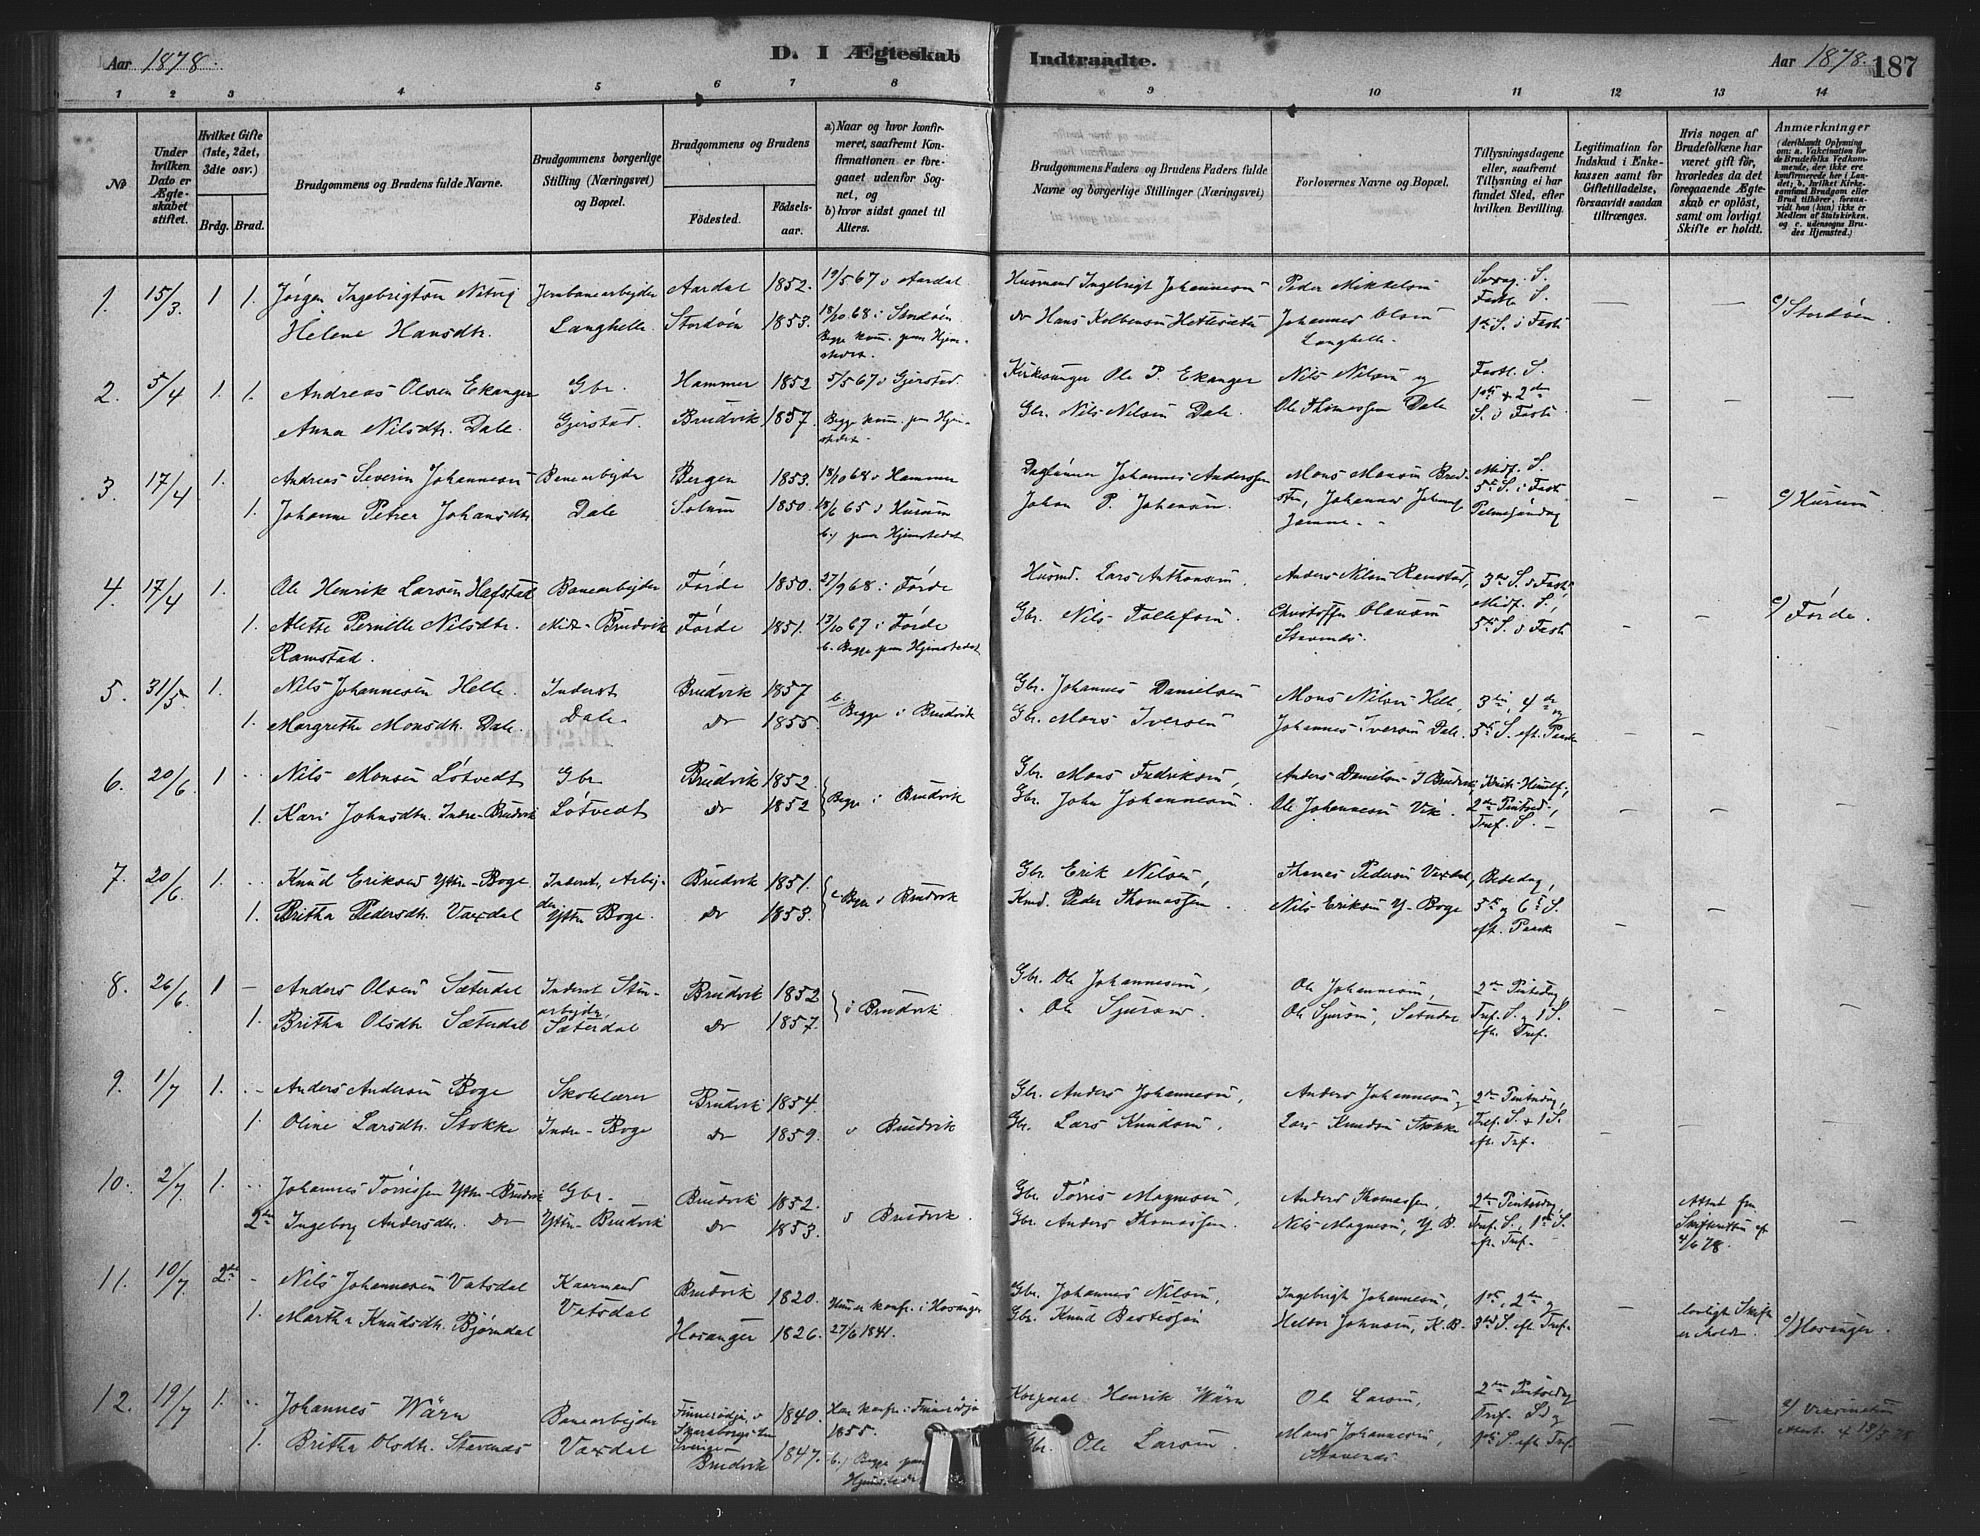 Aar 1878.
D. I Ægteskab
Indtraadte.
Aar 1878.
187
1 2 3 4 5 6 7 8 9 10 11 12 13 14
No
Under hvilken Dato er Ægteskabet stiftet.
Hvilket Gifte (1ste, 2det, 3die osv.)
Brdg. Brud.
Brudgommens og Brudens fulde Navne.
Brudgommens borgerlige Stilling (Næringsvei) og Bopæl.
Brudgommens og Brudens
Fødested.
Fødselsaar.
a) Naar og hvor konfirmeret, saafremt Konfirmationen er foregaaet udenfor Sognet, og
b) hvor sidst gaaet til Alters.
Brudgommens Faders og Brudens Faders fulde Navne og borgerlige Stillinger (Næringsvei)
Forlovernes Navne og Bopæl.
Tillysningsdagene eller, saafremt Tillysning ei har fundet Sted, efter hvilken Bevilling.
Legitimation for Indskud i Enkekassen samt for Giftetilladelse, forsaavidt saadan tiltrænges.
Hvis nogen af Brudefolkene har været gift før, hvorledes da det foregaaende Ægteskab er opløst, samt om lovligt Skifte er holdt.
Anmærkninger (deriblandt Oplysning om: a. Vakcination for de Brudefolks Vedkommende, der ikke ere konfirmerede her i Landet; b. hvilket Kirkesamfund Brudgom eller Brud tilhører, forsaavidt han (hun) ikke er Medlem af Statskirken, og c. udensogns Brudes Hjemsted.)
1. 15/3 1 1. Jørgen Ingebrigtsen Jernbanearbejder Aardal 1852. 19/5 67 i Aardal Husmand Ingebrigt Johannesen Peder Mikkelsen
Helene Hansdtr. Langhelle. Stordøen 1853. 18/10 68 i Stordøen. do Hans Kolbensen Johannes Olsen Langhelle 1ste S. i Faste c) Stordøen.
Begge kom. paa Hjemstedet.
2. 5/4 1. 1. Andreas Olsen Ekanger Gbr. Hammer 1852 5/5 67 i Gjerstad. Kirkesanger Ole P. Ekanger Nils Nilsen og Fastl. S.
Anna Nilsdtr. Dale. Gjerstad. Brudvik 1857. Begge kom. paa Hjemstedet. Gbr. Nils Nilsen Dale. Ole Thomassen Dale 1ste & 2den S. i Faste
3. 17/4 1. Andreas Severin Johannesen Banearbejder Bergen 1853. 18/10 68 i Hammer Daglønner Johannes Anderssen Mons Monsen Midf. S.
1. Johanne Petrea Johansdtr. Dale Solum 1850. 18/6 65 i Hurum Johan P. Johansen. 5te S. i Faste Palmesøndag c) Hurum
b.) paa Hjemstedet
4. 17/4 1. Ole Henrik Larsen Hafstad Banearbejder Førde 1850. 27/9 68 i Førde Husmd. Lars Anthonsen. Anders Nilsen Ramstad, 3die S. i Faste
1. Alette Pernille Nilsdtr. Ramstad. Midt-Brudvik Førde 1851. 13/10 67 i Førde Gbr. Nils Tollefsen. Christoffer Olausen Stavenes. Midf. S., 5te S. i Faste c) Førde.
b. Begge paa Hjemstedet
5. 31/5 1. Nils Johannesen Helle Inderst Brudvik 1857 Gbr. Johannes Danielsen Mons Nilsen Helle, 3die, 4de og
1. Margrethe Monsdtr. Dale. Dale. do 1855. Begge i Brudvik Gbr. Mons Iversen Johannes Iversen Dale. 5te S. eft. Paaske
6. 20/6 1 Nils Monsen Løtvedt Gbr. Brudvik 1852. Gbr. Mons Fredriksen, Anders Danielsen I Brudvik, Kristi Himmelf;
1. Kari Johnsdtr. Indre-Brudvik Løtvedt do 1852 Begge i Brudvik Gbr. John Johannesen. Ole Johannesen Vik. 2den Pintsed; Tref. S.
7. 20/6 1. Knud Eriksen Yttre-Boge Inderst, Arbejder Brudvik 1851. Gbr. Erik Nilsen, Thomas Pedersen Vaxdal, Bededag,
1. Britha Pedersdtr. Vaxdal Yttre Boge. do 1853. Begge i Brudvik Kmd. Peder Thomassen. Nils Eriksen Y-Boge 5te og 6te S. eft. Paaske
8. 26/6 1 Anders Olsen Sæterdal Inderst Stenarbejder, Brudvik 1852 Gbr. Ole Johannesen, Ole Johannesen, 2den Pintsedag
1. Britha Olsdtr. Sæterdal Sæterdal do 1857. i Brudvik " Ole Sjursen. Ole Sjursen, Tref. S. og 1 S. eft. Tref.
9. 1/7 1. Anders Andersen Boge Skolelærer Brudvik 1854. Gbr. Anders Johannesen, Anders Johannesen, 2den Pintsedag,
1. Oline Larsdtr. Stokke Indre-Boge do 1859. i Brudvik Gbr. Lars Knudsen, Lars Knudsen Stokke Tref. S. & 1 S. eft. Tref.
10. 2/7 1. Johannes Tørrissen Yttre-Brudvik Gbr. Brudvik 1852. Gbr. Tørris Magnesen, Anders Thomassen, 2den Pintsedag,
2den Ingeborg Andersdtr. do Yttre-Brudvik do 1853. i Brudvik. Gbr. Anders Thomassen. Nils Magnesen, Y. B. Tref. S., 1ste S. eft. Tref. Attest fra Skifteretten af 4/6 78.
11. 10/7 2det Nils Johannesen Vatsdal Kaarmand Brudvik 1820. Gbr. Johannes Nilsen, Ingebrigt Johannesen, 1ste, 2den og
1. Martha Knudsdtr. Bjørndal Vatsdal Hosanger 1826. Hun er konfr. i Hosanger 27/6 1841. Gbr. Knud Bertessøn 3die S. eft. Tref. lovligt Skifte er holdt. c) Hosanger.
12. 19/7 1. Johannes Wärn Banearbejder Finnerødja, i Skaraborgs-Len Sverge 1840. Han konfr. i Finnerødja 1855. Korporal Henrik Wärn Ole Larsen, 2den Pintsedag
1. Britha Olsdtr. Stavenes Vaxdal Brudvik 1847. b.) Begge paa Hjemstedet Gbr. Ole Larsen. Mons Johannesen, Stavenes Tref. S. og 1ste S. eft. Tref. a) Vakcination attest